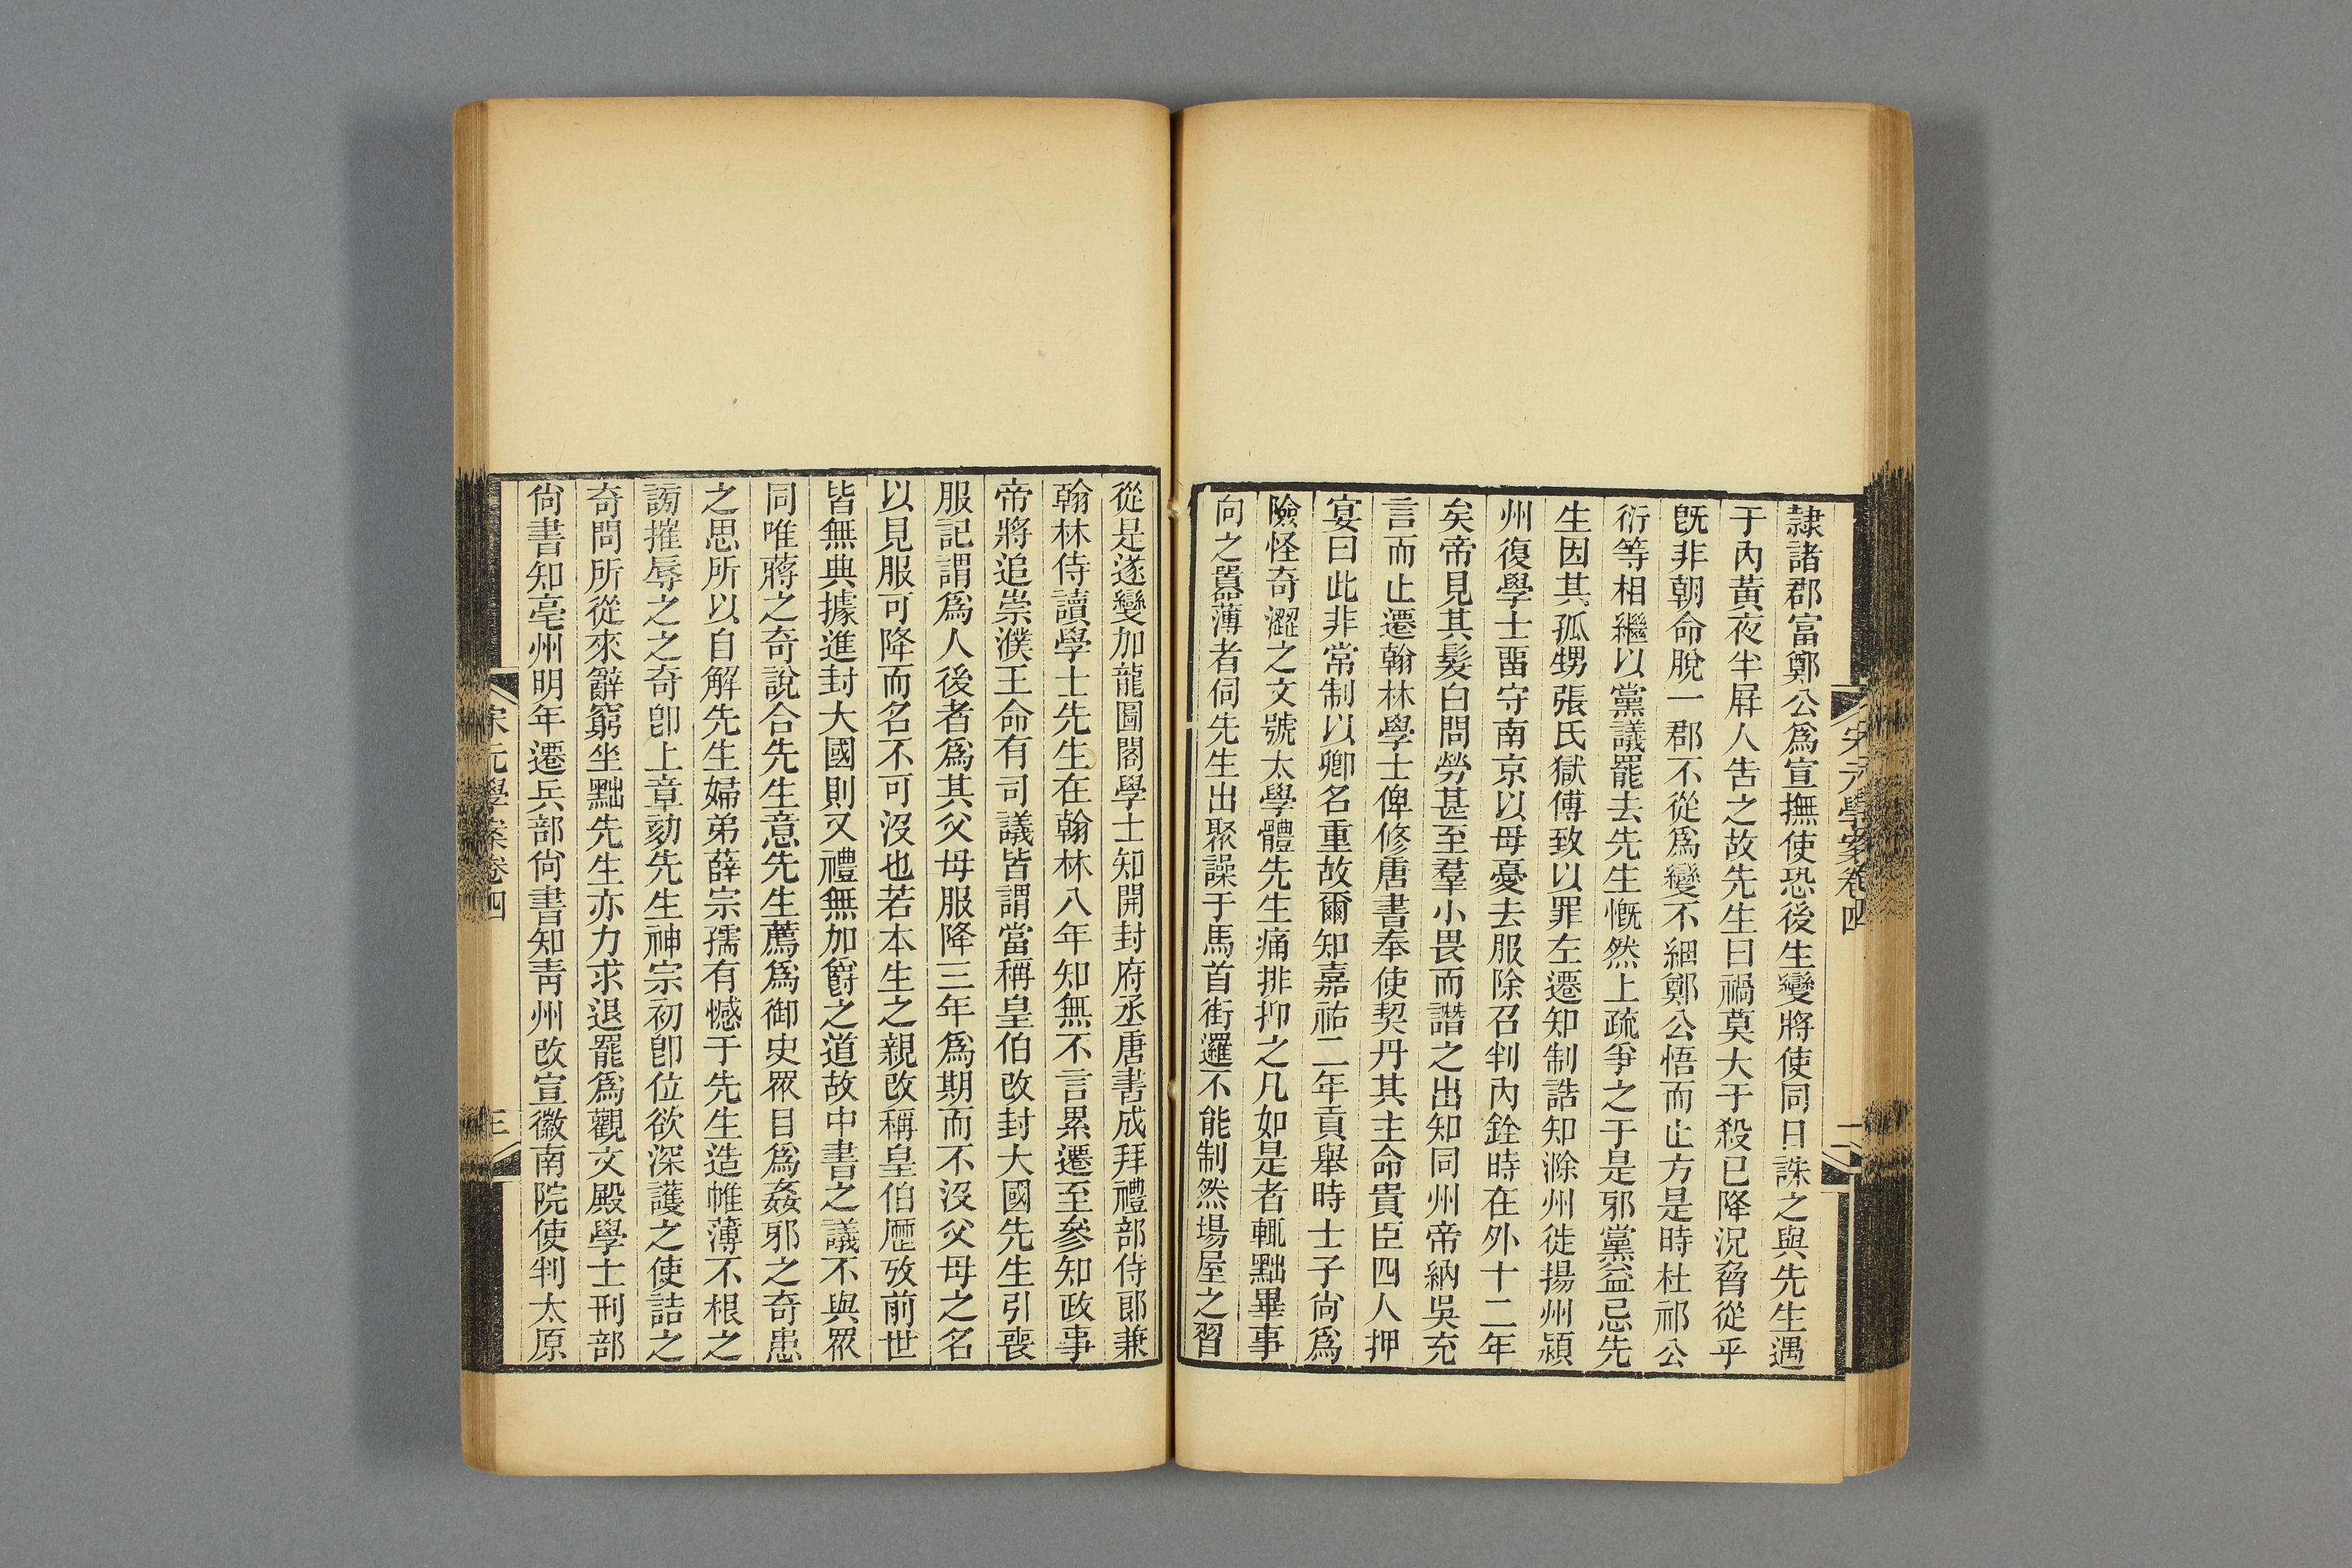 隷諸郡富鄭公爲宣撫使恐後生變將使同日誅之與先生遇
于內黃夜半屛人告之故先生曰禍莫大于殺已降況脅從乎
旣非朝命脫一郡不從爲變不細鄭公悟而止方是時杜祁公
衍等相繼以黨議罷去先生慨然上疏爭之于是邪黨益忌先
生因其孤甥張氏獄傅致以罪左遷知制誥知滁州徙揚州潁
州復學士畱守南京以母憂去服除召判內銓時在外十二年
矣帝見其髮白問勞甚至羣小畏而譖之出知同州帝納吳充
言而止遷翰林學士俾修唐書奉使契丹其主命貴臣四人押
宴曰此非常制以卿名重故爾知嘉祐二年貢舉時士子尙爲
險怪奇澀之文號太學體先生痛排抑之凡如是者輒黜畢事
向之囂薄者伺先生出聚譟于馬首街邏不能制然場屋之習
宋元學案卷四
二
從是遂變加龍圖閣學士知開封府丞唐書成拜禮部侍郎兼
翰林侍讀學士先生在翰林八年知無不言累遷至參知政事
帝將追崇濮王命有司議皆謂當稱皇伯改封大國先生引喪
服記謂爲人後者爲其父母服降三年爲期而不沒父母之名
以見服可降而名不可沒也若本生之親改稱皇伯歷攷前世
皆無典據進封大國則又禮無加爵之道故中書之議不與眾
同唯蔣之奇說合先生意先生薦爲御史眾目爲姦邪之奇患
之思所以自解先生婦弟薛宗孺有憾于先生造帷薄不根之
謗摧辱之之奇卽上章劾先生神宗初卽位欲深護之使詰之
奇問所從來辭窮坐黜先生亦力求退罷爲觀文殿學士刑部
尙書知亳州明年遷兵部尙書知靑州改宣徽南院使判太原
宋元學案卷四
三